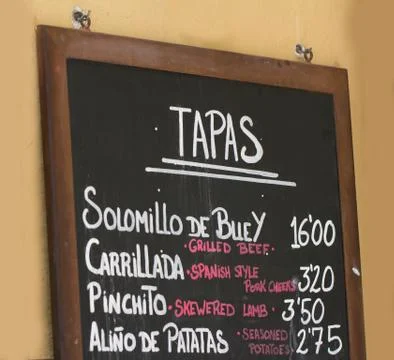 TAPAS
SOLOMILLO DE BUEY 16'00
·GRILLED BEEF·
CARRILLADA ·SPANISH STYLE
PORK CHEEKS 3'20
PINCHITO ·SKEWERED LAMB· 3'50
ALIÑO DE PATATAS ·SEASONED
POTATOES 2'75